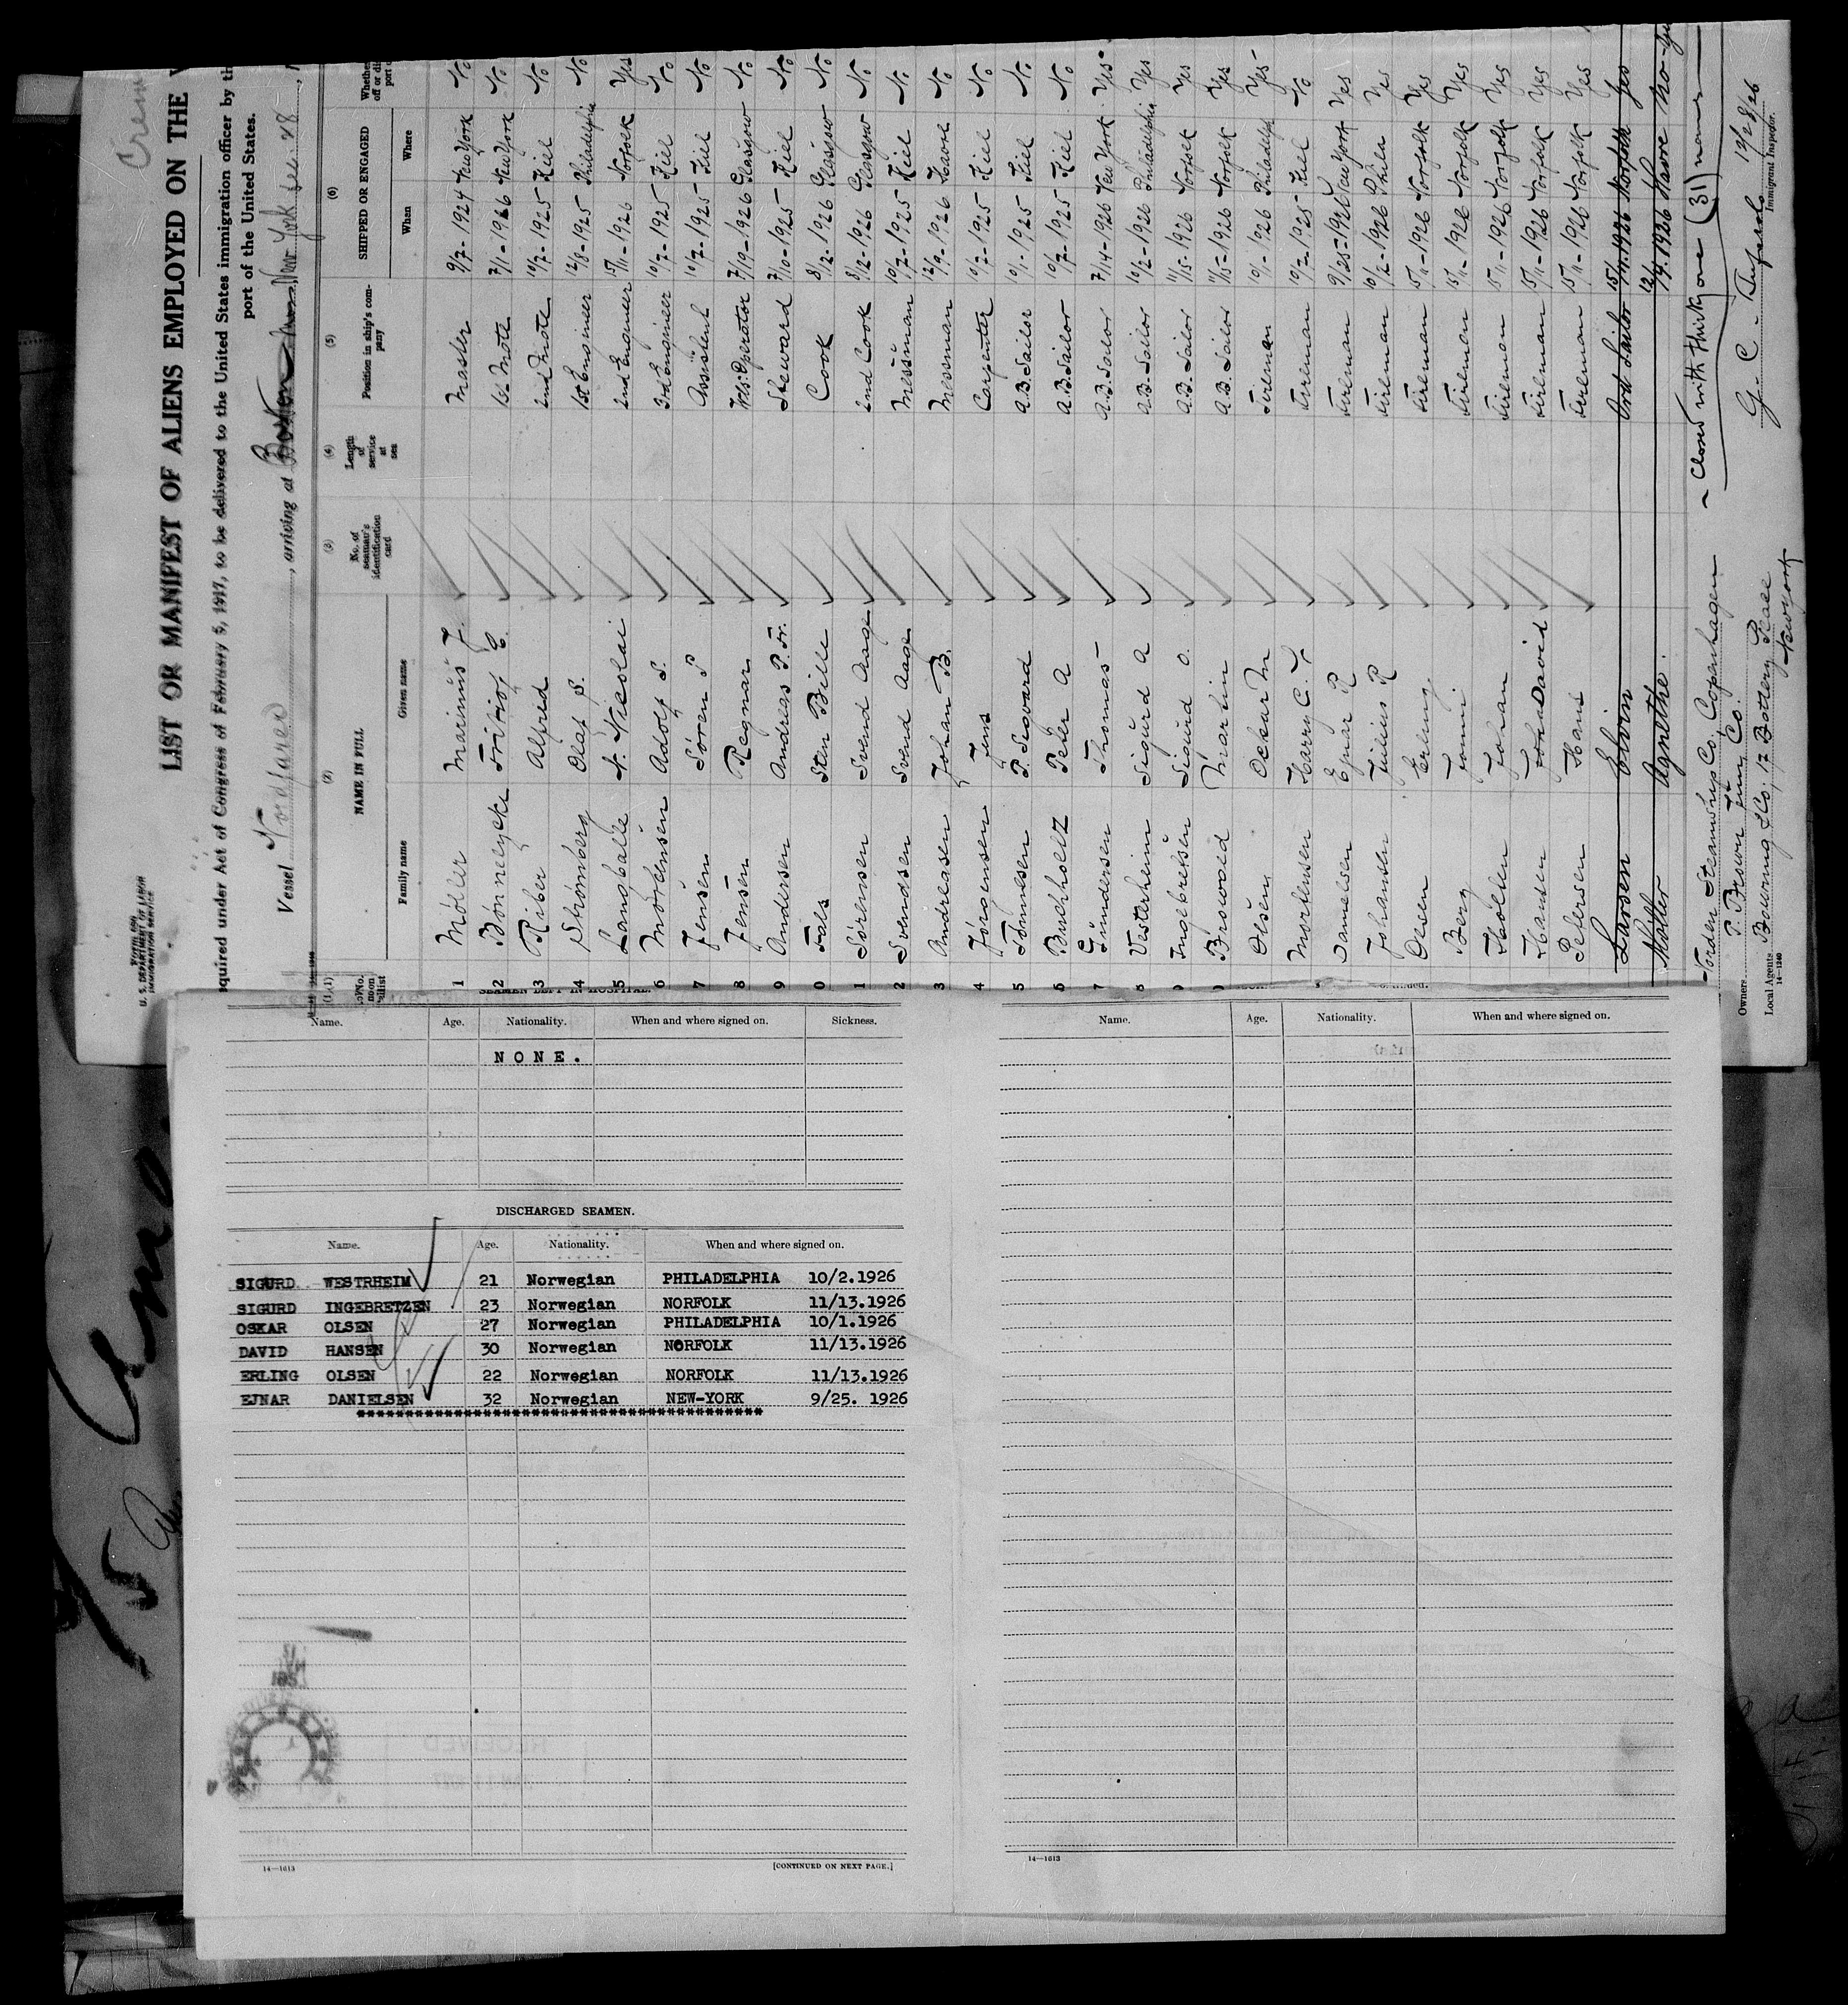 Crew
FORM 689
U. S. DEPARTMENT OF LABOR
IMMIGRATION SERVICE
LIST OR MANIFEST OF ALIENS EMPLOYED ON THE
equired under Act of Congress of February 5, 1917, to be delivered to the United States immigration officer by th
port of the United States.
Vessel Nordfarer, arriving at Boston New York Dec. 28
(1) (2) (3) (4) (5) (6)
NAME IN FULL No. of seaman's identification card Length of service at sea Position in ship's company SHIPPED OR ENGAGED Whether
Family name Given name When Where
1 Möller Marinus Master 9/7-1924 New York No
2 Bönnelycke Fritiof C. 1st Mate 7/1-1926 New York No
3 Riber Alfred 2nd Mate 10/7-1925 Kiel No
4 Strömberg Olaf S. 1st Engineer 12/8-1925 Philadelphia No
5 Langballe N. Nicolai 2nd Engineer 15/11-1926 Norfolk Yes
6 Mortensen Adolf S. 3rd Engineer 10/7-1925 Kiel No
7 Jensen Sören P Assistent 10/7-1925 Kiel No
8 Jensen Regnar Wls. Operator 7/19-1926 Glasgow No
9 Andersen Andreas P. Fr. Steward 7/10-1925 Kiel No
0 Fals Sten Bille Cook 8/12-1926 Glasgow No
1 Sörensen Svend Aage 2nd Cook 8/12-1926 Glasgow No
2 Svendsen Svend Aage Messman 10/7-1925 Kiel No
3 Andreasen Johan B. Messman 12/9-1926 Havre No
4 Jörgensen Jens Carpenter 10/7-1925 Kiel No
5 Tönnesen P. Sigvard A.B. Sailor 10/11-1925 Kiel No
6 Buchholtz Peter A A.B. Sailor 10/7-1925 Kiel No
7 Gundersen Thomas A.B. Sailor 7/14-1926 New York Yes
8 Vesterheim Sigurd A A.B. Sailor 10/2-1926 Philadelphia Yes
9 Ingebretsen Sigurd O. A.B. Sailor 11/15-1926 Norfolk Yes
Browold Martin A.B. Sailor 11/15-1926 Norfolk Yes
Olsen Ockar M Fireman 10/1-1926 Philadelph Yes
Mortensen Harry C. Fireman 10/7-1925 Kiel No
Danielsen Ejnar R Fireman 9/25-1926 New York Yes
Johansen Julius R Fireman 10/2-1926 Phila Yes
Olsen Erling Fireman 15/11-1926 Norfolk Yes
Berg Fireman 15/11-1926 Norfolk Yes
Holten Johan Fireman 15/11-1926 Norfolk Yes
Hansen David Fireman 15/11-1926 Norfolk Yes
Petersen Hans Fireman 15/11-1926 Norfolk Yes
Larsen Elvin Ord Sailor 15/11-1926 Norfolk Yes
Möller Agnethe 1926 Havre No
Closed with thirty one (31) names
Norden Steamship Co. Copenhagen
Owners P. Brown Jun Co.
Local Agents Bowring & Co, 17 Battery Place
Newyork
14—1240
G. C. 12/28/26
Immigrant Inspector.
SEAMEN LEFT IN HOSPITAL.
Name. Age. Nationality. When and where signed on. Sickness.
NONE.
DISCHARGED SEAMEN.
Name. Age. Nationality. When and where signed on.
SIGURD WESTRHEIM 21 Norwegian PHILADELPHIA 10/2.1926
SIGURD INGEBRETZEN 23 Norwegian NORFOLK 11/13.1926
OSKAR OLSEN 27 Norwegian PHILADELPHIA 10/1.1926
DAVID HANSEN 30 Norwegian NORFOLK 11/13.1926
ERLING OLSEN 22 Norwegian NORFOLK 11/13.1926
EJNAR DANIELSEN 32 Norwegian NEW-YORK 9/25. 1926
14—1613
[CONTINUED ON NEXT PAGE.]
Name. Age. Nationality. When and where signed on.
14—1613